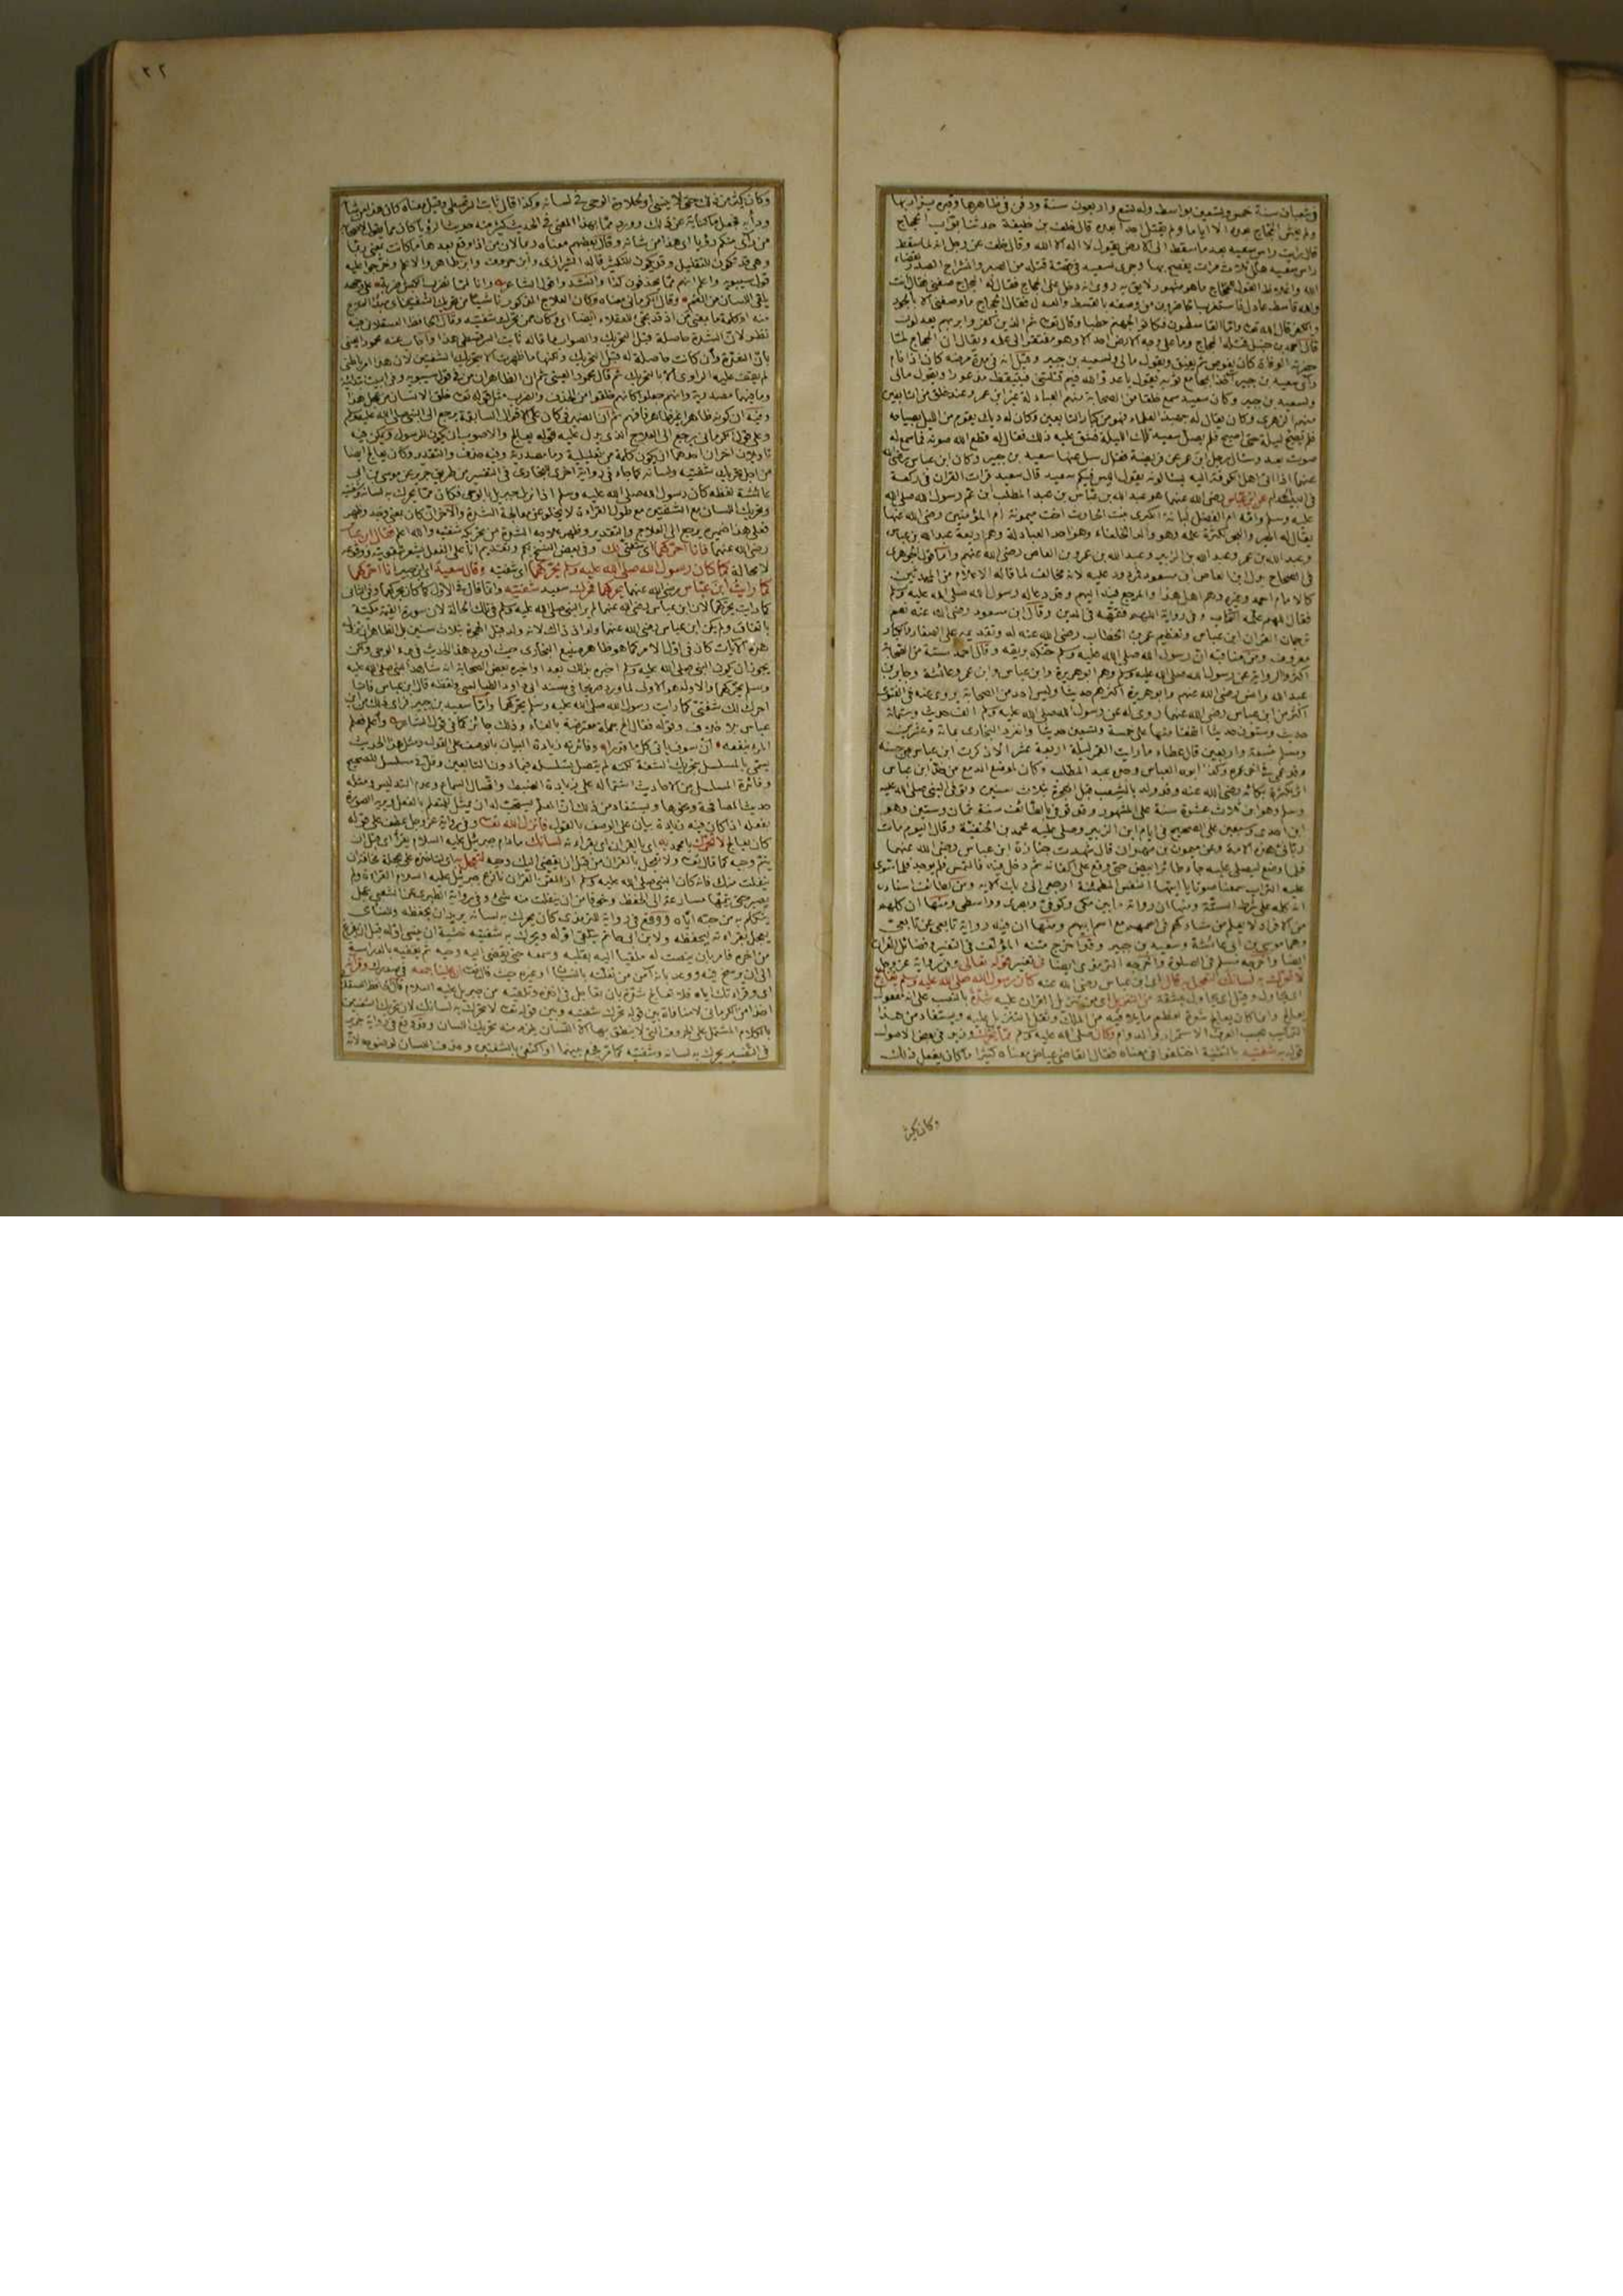 في شعبان سنة خمس وتسعين بواسط وله تسع واربعون سنة ودفن في ظاهرها وقبره يزار بها
ولم يعش الحجاج بعده الا اياما ولم يقتل احدا بعده قال خلف بن خليفة حدثنا بواب الحجاج
قال رايت راس سعيد بعد ما سقط الى الارض يقول لا اله الا الله وقال خلف عن رجل انه لما سقط
راس سعيد هلل ثلاث مرات يفصح بها وجرى لسعيد في قصة قتله من الصبر وانشراح الصدر
الله واغلاظ القول للحجاج ما هو مشهور لايق به روى انه دخل على الحجاج فقال له الحجاج صفني فقال انت
قال احمد بن حنبل قتله الحجاج وما على وجه الارض احد الا وهو مفتقر الى علمه ويقال ان الحجاج لما
حضرته الوفاة كان يغوص ثم يفيق ويقول مالي ولسعيد بن جبير وقيل انه في مدة مرضه كان اذا نام
راى سعيد بن جبير اخذا بمجامع ثوبه يقول يا عدو الله فيم قتلتني فيستيقظ مذعورا ويقول مالي
ولسعيد بن جبير وكان سعيد سمع خلقا من الصحابة منهم العبادلة غير ابن عمرو وعنه خلق من التابعين
منهم الزهري وكان يقال له جهبذ العلماء وهو من كبار التابعين وكان له ديك يقوم من الليل بصياحه
فلم يصح ليلة حتى اصبح فلم يصل سعيد تلك الليلة فشق عليه ذلك فقال له قطع الله صوته فما سمع له
صوت بعد وسال رجل ابن عمر عن فريضة فقال سل عنها سعيد بن جبير وكان ابن عباس رضي الله
عنهما اذا اتى اهل الكوفة اليه يسالونه يقول اليس فيكم سعيد قال سعيد قرات القران في ركعة
في البيت الحرام عن ابن عباس رضي الله عنهما هو عبد الله بن عباس بن عبد المطلب ابن عم رسول الله صلى الله
عليه وسلم وامه ام الفضل لبابة الكبرى بنت الحارث اخت ميمونة ام المؤمنين رضي الله عنها
يقال له الحبر والبحر لكثرة علمه وهو والد الخلفاء وهو احد العبادلة وهم اربعة عبد الله بن عباس
وعبد الله بن عمر وعبد الله بن الزبير وعبد الله بن عمرو بن العاص رضي الله عنهم واما قول الجوهري
في الصحاح بدل ابن العاص ابن مسعود فمردود عليه لانه مخالف لما قاله الاعلام من المحدثين
كالامام احمد وغيره وهم اهل هذا والمرجع فيه اليهم وقد دعا له رسول الله صلى الله عليه وسلم
فقال اللهم علمه الكتاب وفي رواية اللهم فقهه في الدين وقال ابن مسعود رضي الله عنه نعم
ترجمان القران ابن عباس وتعظيم عمر بن الخطاب رضي الله عنه له وتقديمه على الصغار والكبار
معروف ومن مناقبه ان رسول الله صلى الله عليه وسلم حنكه بريقه وقال احمد ستة من الصحابة
اكثروا الرواية عن رسول الله صلى الله عليه وسلم وهم ابو هريرة وابن عباس وابن عمر وعائشة وجابر بن
عبد الله وانس رضي الله عنهم وابو هريرة اكثرهم حديثا وليس احد من الصحابة يروى عنه في الفتوى
اكثر من ابن عباس رضي الله عنهما روي له عن رسول الله صلى الله عليه وسلم الف حديث وستمائة
حديث وستون حديثا اتفقا منها على خمسة وتسعين حديثا وانفرد البخاري بمائة وعشرين
ومسلم بتسعة واربعين قال عطاء ما رايت القمر ليلة اربعة عشر الا ذكرت ابن عباس من حسنه
وقد عمي في اخر عمره وكذا ابوه العباس وجده عبد المطلب وكان موضع الدمع من خد ابن عباس
اثر لكثرة بكائه رضي الله عنه وقد ولد بالشعب قبل الهجرة بثلاث سنين وتوفي النبي صلى الله عليه
وسلم وهو ابن ثلاث عشرة سنة على المشهور وقد توفي بالطائف سنة ثمان وستين وهو
ابن احدى وسبعين على الصحيح في ايام ابن الزبير وصلى عليه محمد بن الحنفية وقال اليوم مات
رباني هذه الامة وعن ميمون بن مهران قال شهدت جنازة ابن عباس رضي الله عنهما
فلما وضع ليصلى عليه جاء طائر ابيض حتى وقع على اكفانه ثم دخل فيه فالتمس فلم يوجد فلما سوي
عليه التراب سمعنا صوتا يا ايتها النفس المطمئنة ارجعي الى ربك الاية ومن لطائف اسناده
انه كله على شرط الستة ومنها ان رواته ما بين مكي وكوفي وبصري وواسطي ومنها ان كلهم
من الافراد لا يعلم من شاركهم في اسمهم مع اسم ابيهم ومنها ان فيه رواية تابعي عن تابعي
وهما موسى بن ابي عائشة وسعيد بن جبير وقد اخرج متنه المؤلف في التفسير وفضائل القران
ايضا واخرجه مسلم في الصلوة واخرجه الترمذي ايضا في تفسير قوله تعالى وفي رواية عز وجل
لا تحرك به لسانك لتعجل به قال اي ابن عباس رضي الله عنه كان رسول الله صلى الله عليه وسلم يعالج
من التنزيل اي من تنزيل القران عليه شدة بالنصب على انه مفعول
التركيب بحسب العرف الاستمرار والدوام وكان صلى الله عليه وسلم مما يحرك وزيد في بعض الاصول
قوله به شفتيه بالتثنية اختلفوا في معناه فقال القاضي عياض معناه كثيرا ما كان يفعل ذلك
وكان يكثر
٢٢
وكان يكثر من ذلك حتى لا ينسى او لحلاوة الوحي في لسانه وكذا قال ثابت السرقسطي وقيل معناه كان هذا من شانه
ودأبه فجعل ما كناية عن ذلك وورود مما بهذا المعنى في الحديث كثير منه حديث الرؤيا كان مما يقول لاصحابه
من راى منكم رؤيا اي هذا من شانه وقال بعضهم معناه ربما لان من اذا وقع بعدها ما كانت بمعنى ربما
وهي قد تكون للتقليل وقد تكون للتكثير قاله الشيرازي وابن خروف وابن طاهر والاعلم وخرجوا عليه
قول سيبويه واعلم انهم مما يحذفون كذا وانشد وا قول الشاعر وانا لمما نضرب الكبش ضربة على راسه
تلقي اللسان من الفم وقال الكرماني معناه وكان العلاج المذكور ناشيئا من تحريك الشفتين
منه او كلمة ما بمعنى من اذ قد تجئ للعقلاء ايضا اي وكان ممن يحرك شفتيه وقال الحافظ العسقلاني فيه
نظر لان الشدة حاصلة قبل التحريك والصواب ما قاله ثابت السرقسطي هذا واجاب عنه محمود العيني
بان الشدة وان كانت حاصلة له قبل التحريك ولكنها ما ظهرت الا بتحريك الشفتين لان هذا امر باطني
لم يقف عليه الراوي الا بالتحريك ثم قال محمود العيني ثم ان الظاهر ان من في قول سيبويه وفي البيت ابتدائية
وما فيهما مصدرية وانهم جعلوا كانهم خلقوا من الحذف والضرب مثل قوله تعالى خلق الانسان من عجل
من اجل تحريك شفتيه ولسانه كما جاء في رواية اخرى للبخاري في التفسير من طريق جرير عن موسى بن ابي
عائشة لفظه كان رسول الله صلى الله عليه وسلم اذا نزل جبريل بالوحي فكان مما يحرك به لسانه وشفتيه
وتحريك اللسان مع الشفتين مع طول القراءة لا يخلو عن معالجة الشدة
رضي الله عنهما فانا احركهما اي شفتي لك وفي بعض النسخ لكم وتقديم انا على الفعل يشعر بتقويته ووقوعه
لا محالة كما كان رسول الله صلى الله عليه وسلم يحركهما اي شفتيه وقال سعيد اي ابن جبير انا احركهما
كما رايت ابن عباس رضي الله عنهما يحركهما فحرك سعيد شفتيه وانما قال في الاول كما كان يحركهما وفي الثاني
كما رايت يحركهما لان ابن عباس رضي الله عنهما لم ير النبي صلى الله عليه وسلم في تلك الحالة لان سورة القيمة مكية
باتفاق ولم يكن ابن عباس رضي الله عنهما ولد اذ ذاك لانه ولد قبل الهجرة بثلاث سنين بل الظاهر ان نزول
هذه الايات كان في اول الامر كما هو ظاهر صنيع البخاري حيث اورد هذا الحديث في بدء الوحي ولكن
يجوز ان يكون النبي صلى الله عليه وسلم اخبره بذلك بعد او اخبره بعض الصحابة انه شاهد النبي صلى الله عليه
وسلم يحركهما والاول هو الاولى لما ورد صريحا في مسند ابي داود الطيالسي ولفظه قال ابن عباس فانا
احرك لك شفتي كما رايت رسول الله صلى الله عليه وسلم يحركهما واما سعيد بن جبير فراى ذلك من ابن
عباس بلا خلاف وقوله فقال الخ جملة معترضة بالفاء وذلك جائز كما في قول الشاعر واعلم فعلم
المرء ينفعه ان سوف ياتي كل ما قدرا وفائدته زيادة البيان بالوصف على القول ومثل هذا الحديث
يسمى بالمسلسل بتحريك الشفة لكنه لم يتصل تسلسله فيما دون التابعين وقل في مسلسل الصحيح
وفائدة المسلسل من الاحاديث اشتماله على زيادة الضبط واتصال السماع وعدم التدليس ومثله
حديث المصافحة ونحوها ويستفاد من ذلك ان المعلم يستحب له ان يمثل للمتعلم بالفعل ويريه الصورة
بفعله اذا كان فيه زيادة بيان على الوصف بالقول فانزل الله تعالى وفي رواية عز وجل عطف على قوله
كان يعالج لا تحرك يا محمد به اي بالقران اي بقراءته لسانك ما دام جبريل عليه السلام يقرأ اي قبل ان
يتم وحيه كما قال تعالى ولا تعجل بالقران من قبل ان يقضى اليك وحيه لتعجل به اي لتاخذه على عجلة مخافة ان
ينفلت منك فانه كان النبي صلى الله عليه وسلم اذا لقن القران نازع جبريل عليه السلام القراءة ولم
يصبر حتى يتمها مسارعة الى الحفظ وخوفا من ان ينفلت منه شئ وفي رواية الطبري عن الشعبي عجل
يتكلم به من حبه اياه ووقع في رواية للترمذي كان يحرك به لسانه يريد ان يحفظه وللنسائي
يعجل بقراءته ليحفظه ولابن ابي حاتم يتلقى اوله ويحرك به شفتيه خشية ان ينسى اوله قبل ان يفرغ
من اخره فامر بان ينصت له ملقيا اليه بقلبه وسمعه حتى يقضى اليه وحيه ثم يقفيه بالدراسة
الى ان يرسخ فيه ووعد بانه امن من تفلته بالنسيان او غيره حيث قال تعالى ان علينا جمعه في صدرك وقرآنه
بالكلام المشتمل على الحروف التي لا ينطق بها الا اللسان يلزم منه تحريك اللسان وقد وقع في رواية جرير
في التفسير يحرك به لسانه وشفتيه كما مر فجمع بينهما او اكتفى بالشفتين وحذف اللسان لوضوحه لانه